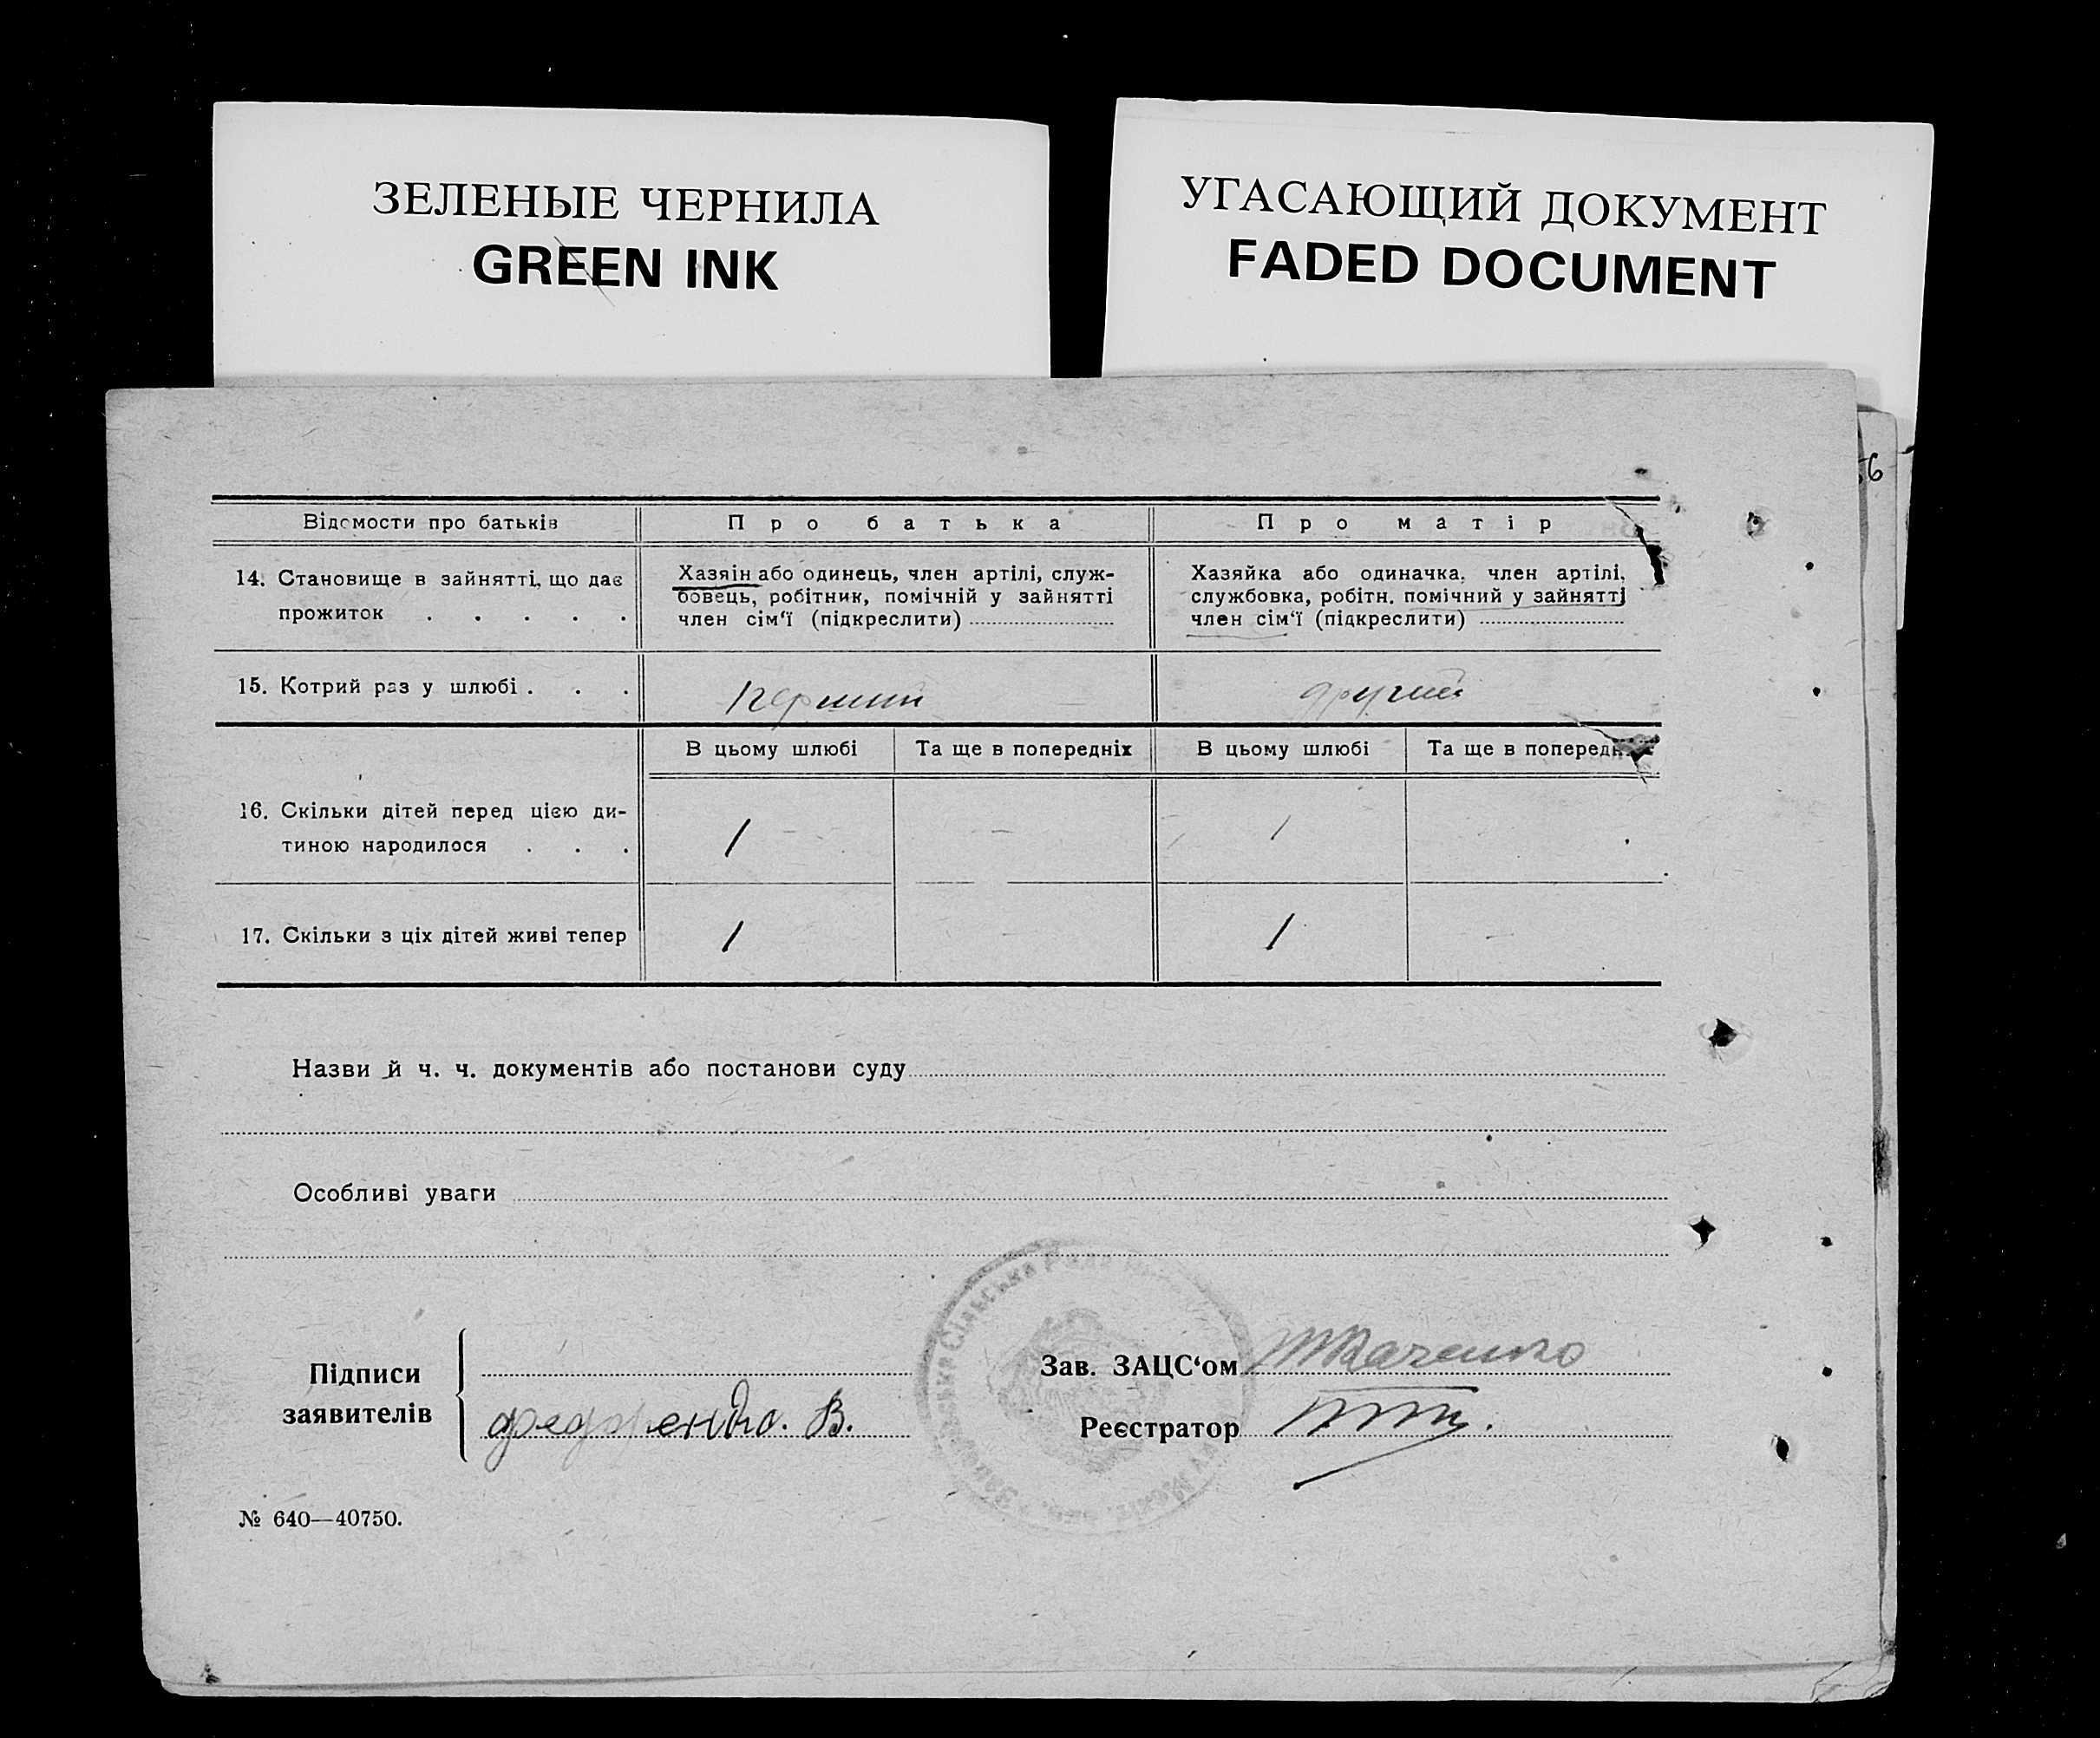 ЗЕЛЕНЫЕ ЧЕРНИЛА
GREEN INK
УГАСАЮЩИЙ ДОКУМЕНТ
FADED DOCUMENT
6
Відомости про батьків
Про батька
Про матір
14. Становище в зайнятті, що дає
прожиток . . . . .
Хазяін або одинець, член артілі, служ-
бовець, робітник, помічній у зайнятті
член сім'ї (підкреслити)
Хазяйка або одиначка, член артілі,
службовка, робітн. помічний у зайнятті
член сім'ї (підкреслити)
15. Котрий раз у шлюбі . . .
перший
другий
В цьому шлюбі
Та ще в попередніх
В цьому шлюбі
Та ще в
16. Скільки дітей перед цією ди-
тиною народилося . . .
1 - -
-
1
17. Скільки з ціх дітей живі тепер
1
-
1
-
Назви й ч. ч. документів або постанови суду
Особливі уваги
Підписи
заявителів
Федоренко. В.
Сільська Рада
Зав. ЗАЦС'ом Ткаченко
Реєстратор
№ 640—40750.